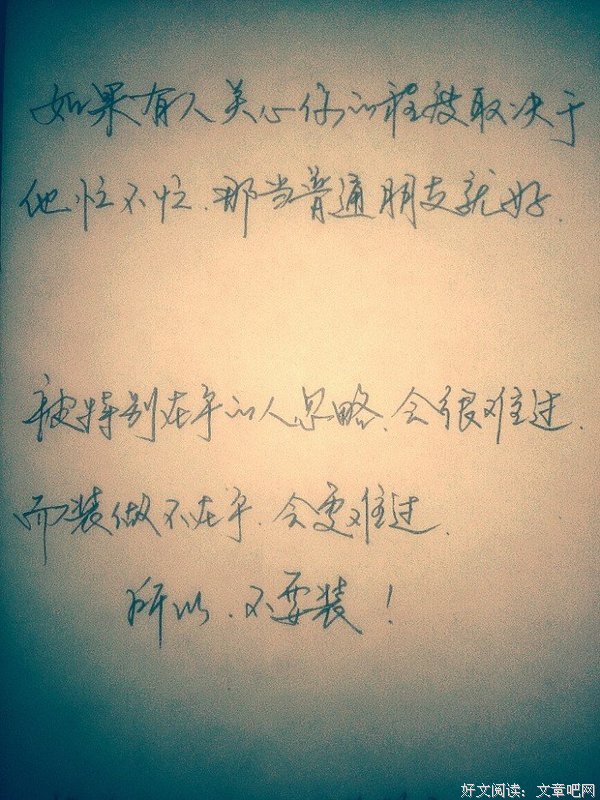 如果有人关心你的程度取决于
他忙不忙、那当普通朋友就好.
被特别在乎的人忽略、会很难过.
而装做不在乎、会更难过.
所以、不要装！
好文阅读：文章吧网